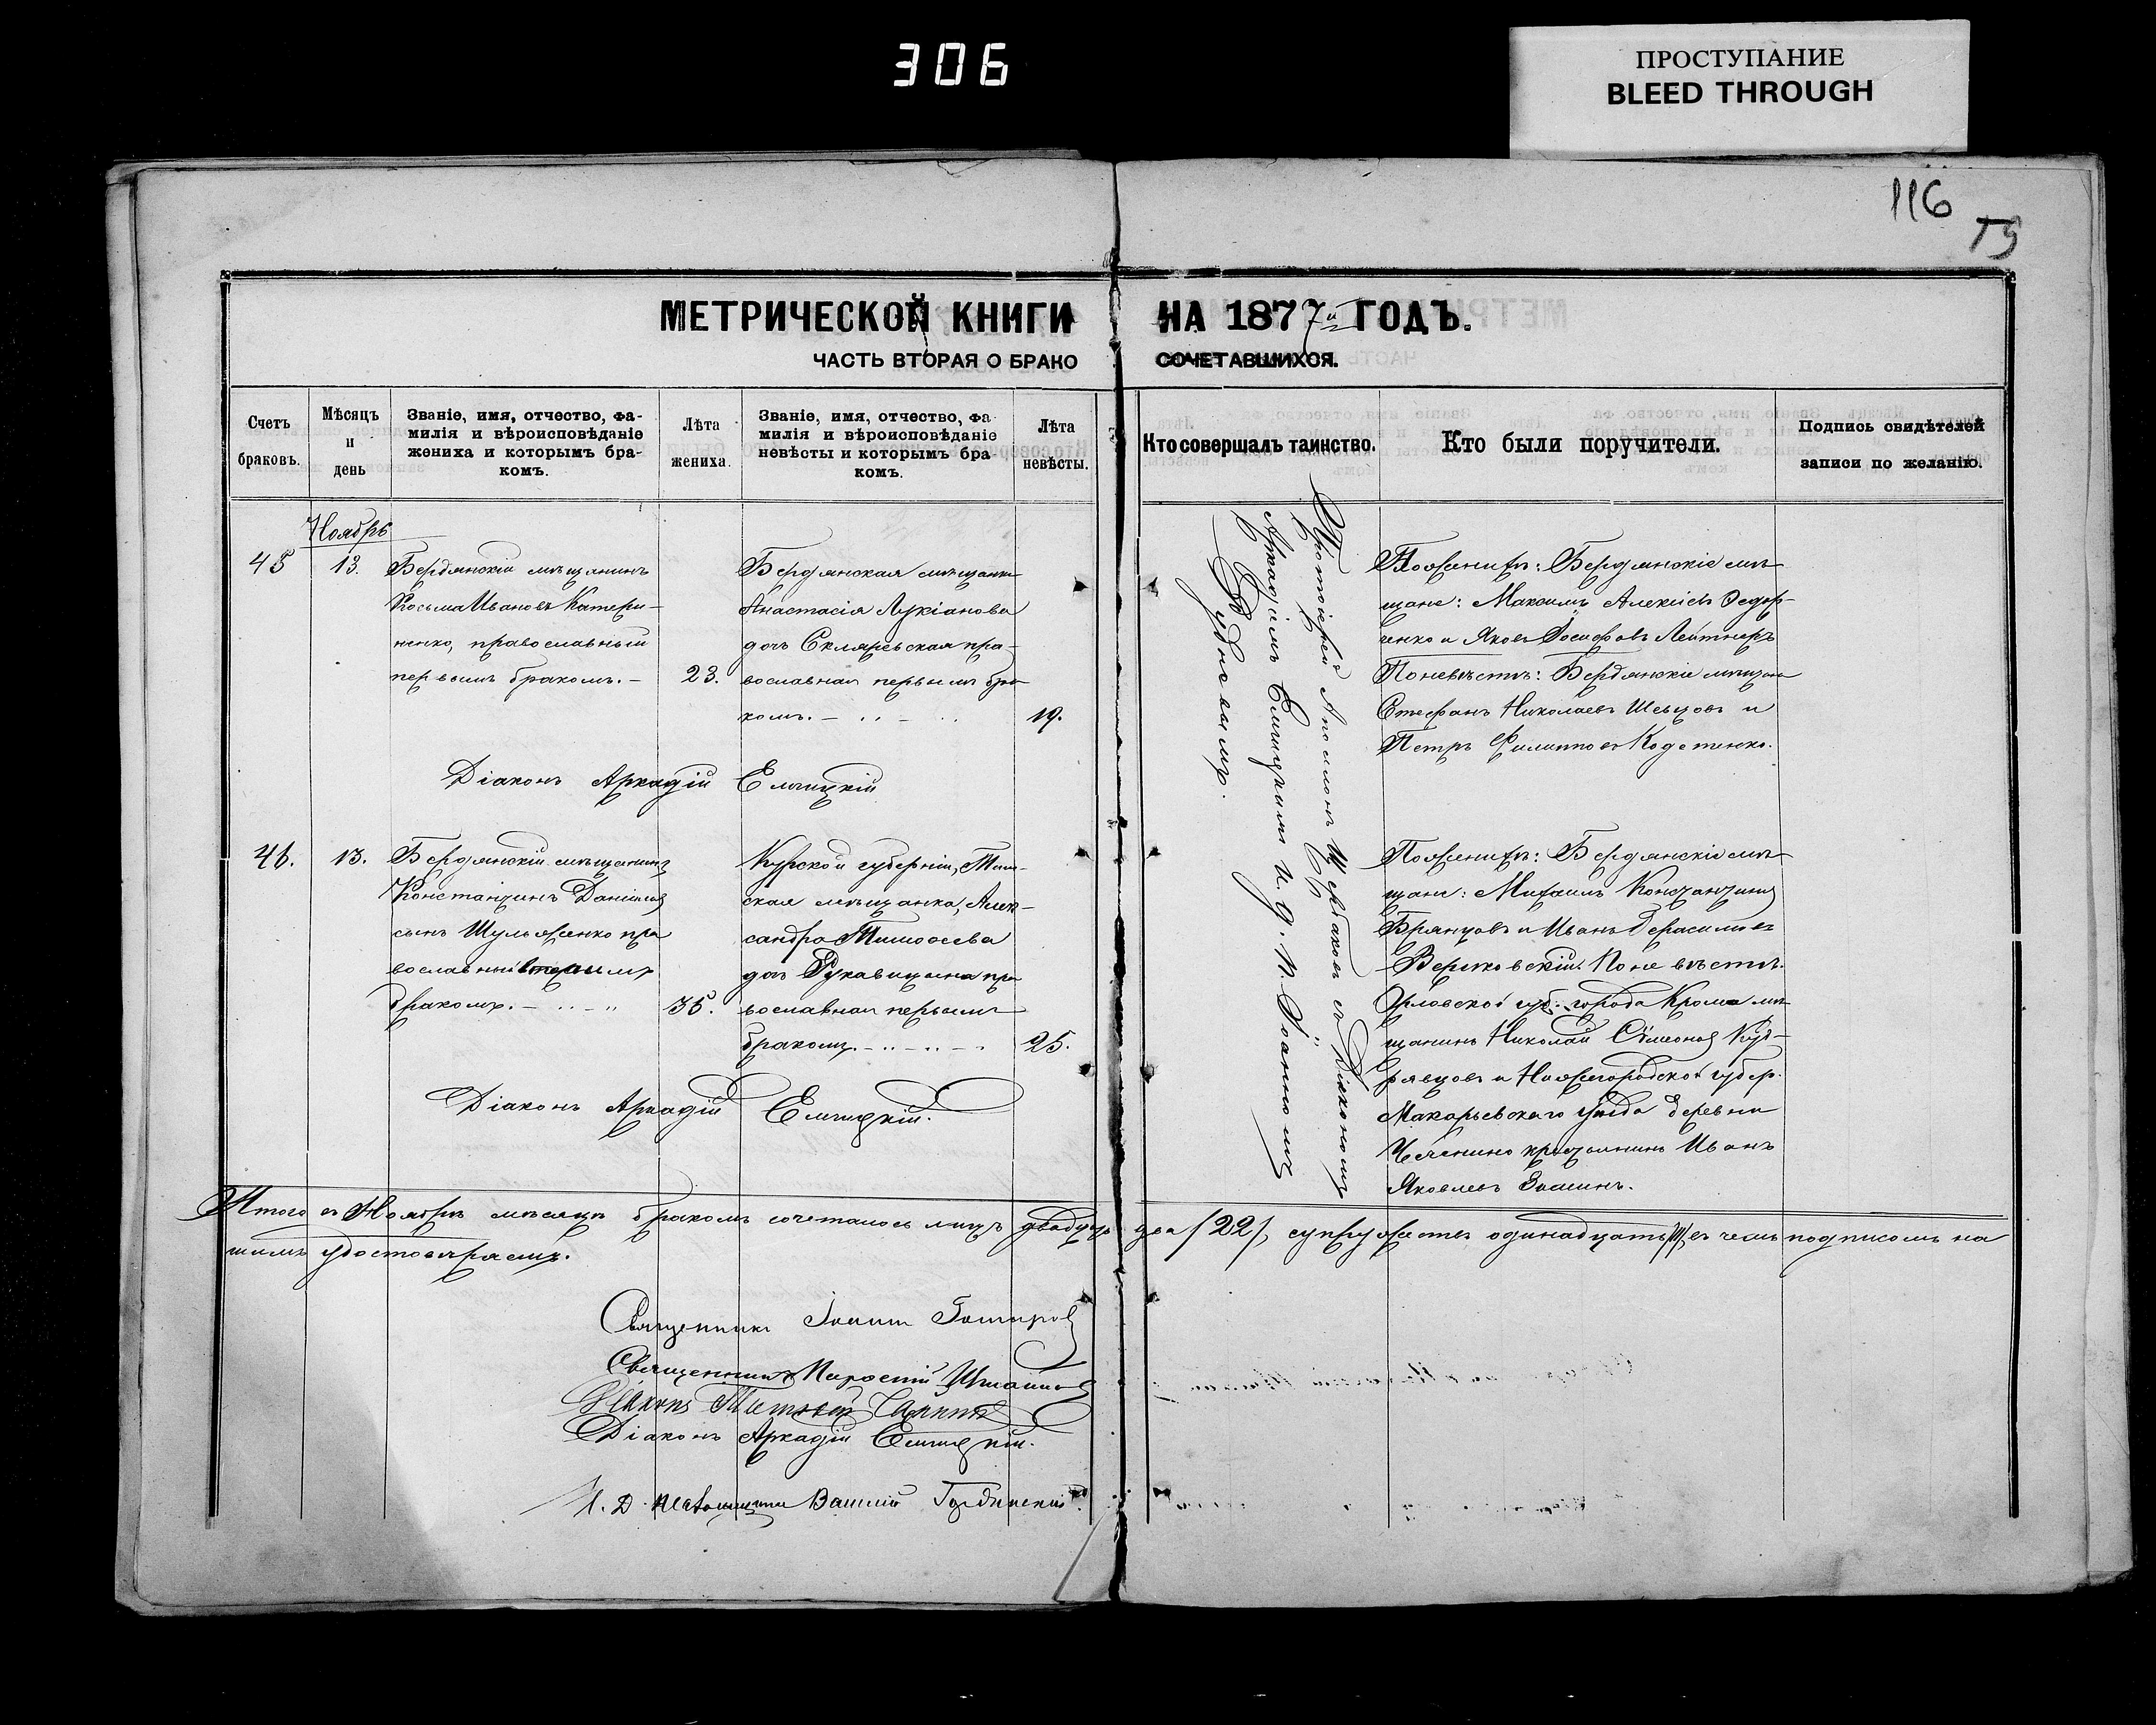 306
ПРОСТУПАНИЕ
BLEED THROUGH
116
МЕТРИЧЕСКОЙ КНИГИ НА 1877й ГОДЪ.
ЧАСТЬ ВТОРАЯ О БРАКОСОЧЕТАВШИХСЯ.
Счетъ браковъ.
Мѣсяцъ и день
Званіе, имя, отчество, фа-
милія и вѣроисповѣданіе
жениха и которымъ бра-
комъ.
Лѣта жениха.
Званіе, имя, отчество, фа
милія и вѣроисповѣданіе
невѣсты и которымъ бра
комъ.
Лѣта невѣсты.
Кто совершалъ таинство.
Кто были поручители.
Подпись свидѣтелей
записи по желанію.
Ноябрь
45
13.
Бердянскій мѣщанинъ
Косьма Ивановъ Катери-
ненко, православный
первымъ бракомъ.-
23.
Бердянская мѣщанка
Анастасія Лукіанова
дочь Скляревская пра-
вославная первымъ бра
комъ.
19.
Протоіерей Аполлонъ Щербаковъ съ Діакономъ
Аркадіемъ Елчицкимъ и. д. п. Іоанномъ
По женихѣ: Бердянскіе мѣ-
щане: Максимъ Алексіевъ Федор-
ченко и Яковъ Іосифовъ Лейтнеръ
По невѣстѣ: Бердянскіе мѣщане
Стефанъ Николаевъ Шевцовъ и
Петръ Филипповъ
Діаконъ Аркадій Елчицкій
46.
13.
Бердянскій мѣщанинъ
Константинъ Даніиловъ
сынъ Шульженко пра
вославный вторымъ
бракомъ.
35.
Курской губерніи, Тим-
ская мѣщанка, Алек-
сандра Тимофеева
дочь Рукавицына пра
вославная первымъ
бракомъ.
25.
По женихѣ: Бердянскіе мѣ-
щане: Михаилъ Константиновъ
Брянцовъ и Иванъ Герасимовъ
Вержковскій. По невѣстѣ.
Орловской губ. города Кромъ мѣ-
щанинъ Николай Сѵмеоновъ Куд-
рявцовъ и Нижегородской губер.
Макарьевскаго уѣзда деревни
крестьянинъ Иванъ
Яковлевъ
Діаконъ Аркадій Елчицкій.
Итого въ Ноябрѣ мѣсяцѣ бракомъ сочеталось лицъ двадцать два /22/, супружествъ одинадцать /11/, въ чемъ подписомъ на
шимъ удостовѣряемъ.
Священникъ Іоаннъ
Священникъ
Діаконъ
Діаконъ Аркадій Елчицкій.
И. Д. Псаломщика Василій